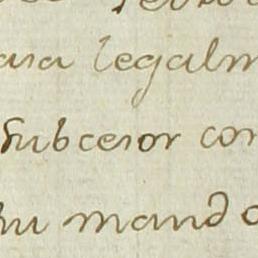 ara legalm
Subcesor con
su mando